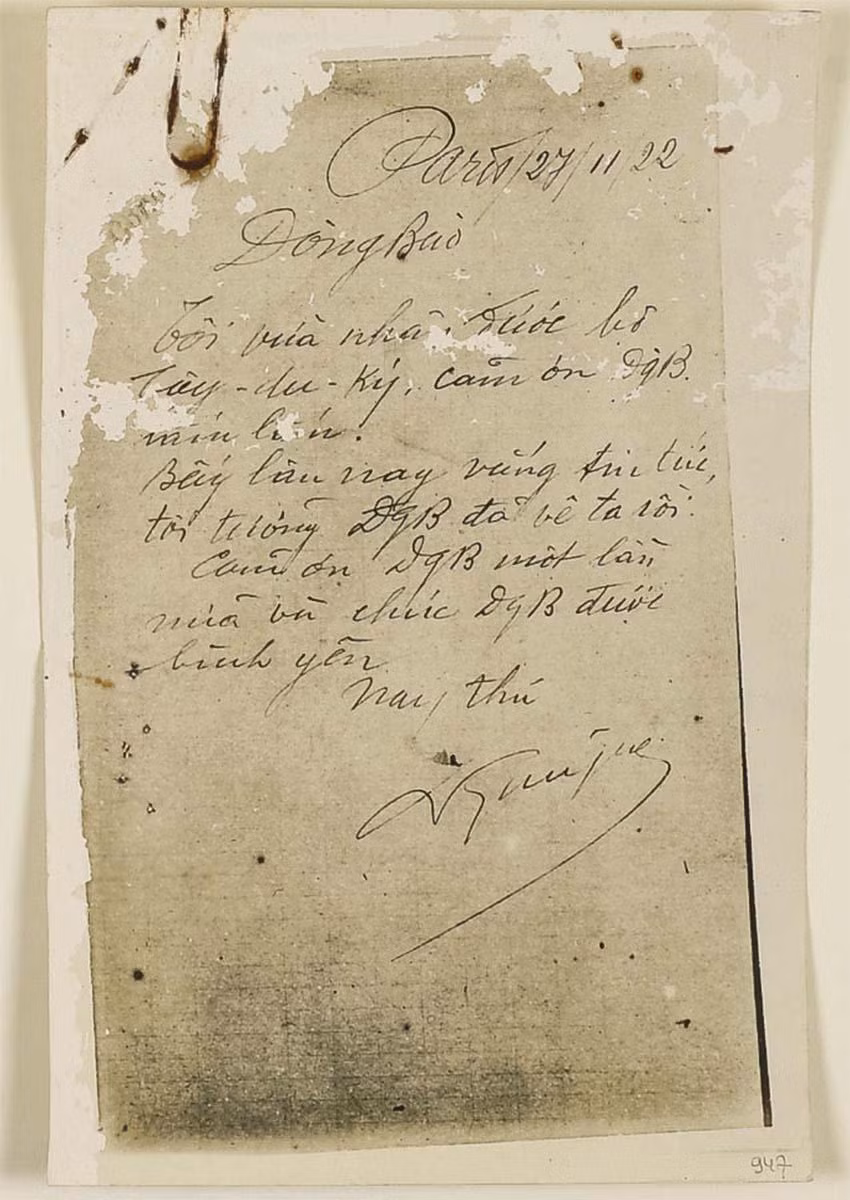 Paris/27/11/22
Đồng Bào
Tôi vừa nhận được bộ
Tây-du-ký. cảm ơn ĐgB.
Bấy lâu nay vắng tin tức,
tôi tưởng ĐgB đã về ta rồi.
Cảm ơn ĐgB một lần
nữa và chúc ĐgB được
bình yên
Nay thư
947